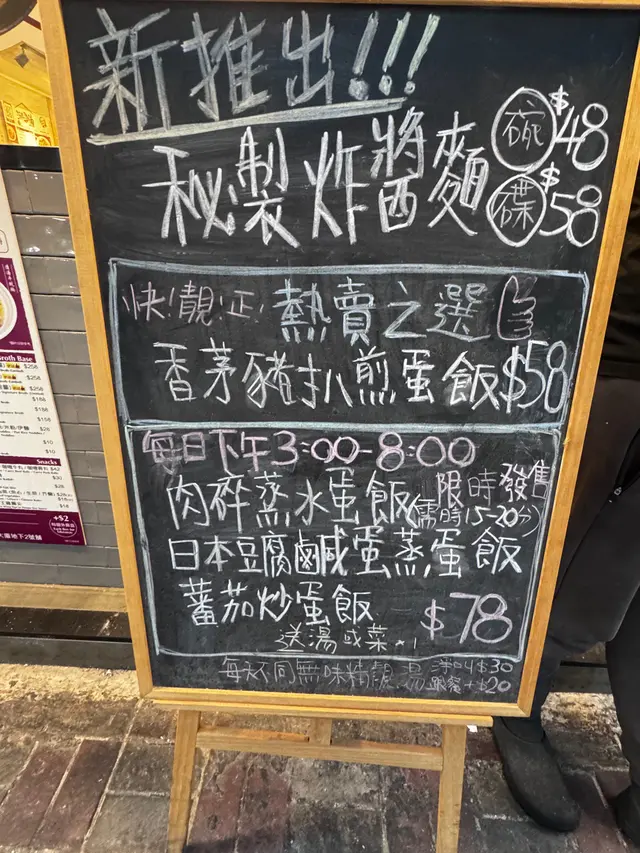 新推出!!!
秘製炸醬麵 碗 $48
碟 $58
快!靚!正! 熱賣之選
香茅豬扒煎蛋飯 $58
每日下午3:00-8:00
限時發售
肉碎蒸水蛋飯(需時15-20分)
日本豆腐鹹蛋蒸蛋飯
蕃茄炒蛋飯
$78
送湯或菜×1
每天不同無味精
$30
跟餐+$20
roth Base
$256
$256
$256
$188
$188
$188
$26
$10
$10
Snacks
$42
$30
$28
$18
+$2
大廈地下2號舖